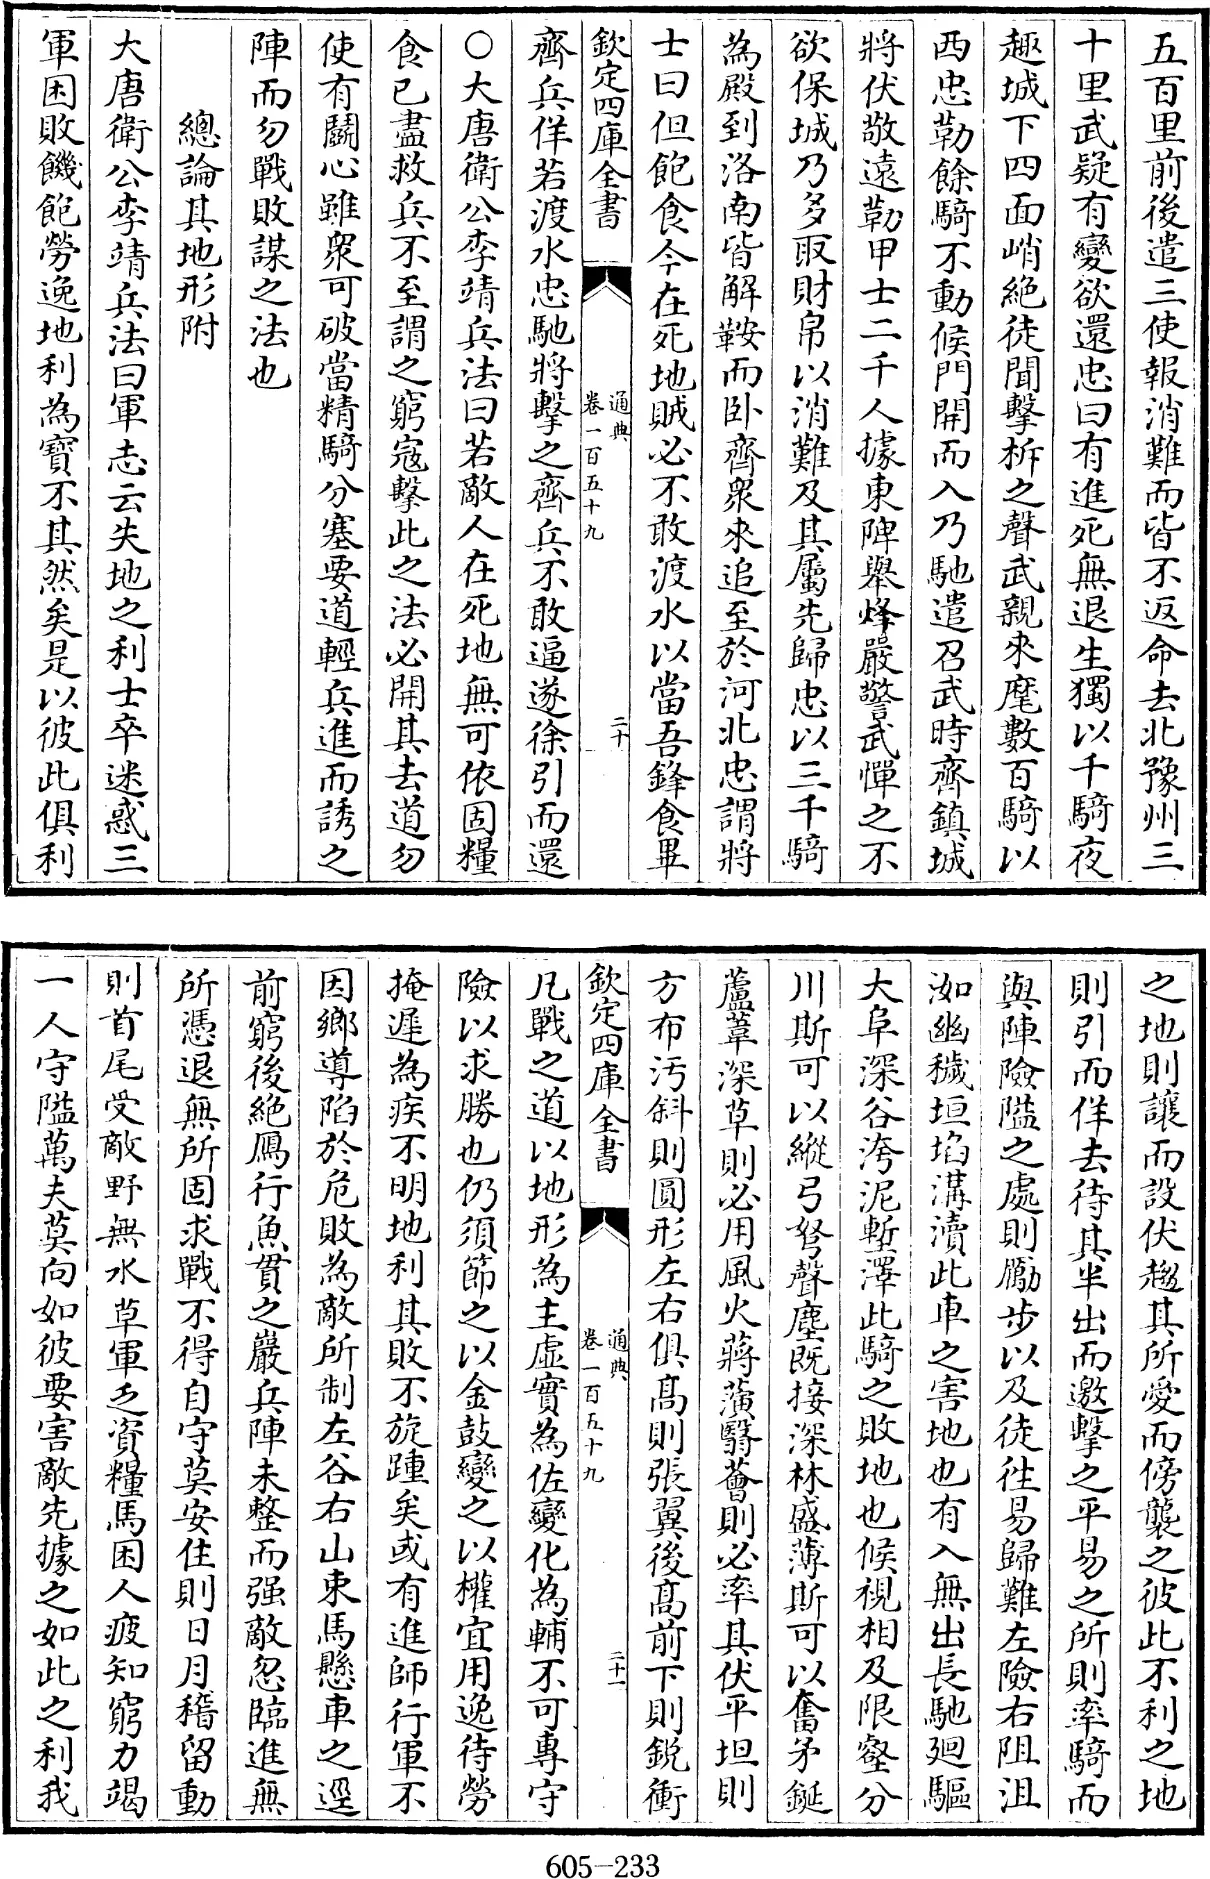 五百里前後遣三使報消難而皆不返命去北豫州三
十里武疑有變欲還忠曰有進死無退生獨以千騎夜
趣城下四面峭絶徒聞擊柝之聲武親來麾數百騎以
西忠勒餘騎不動候門開而入乃馳遣召武時齊鎮城
將伏敬遠勒甲士二千人據東陴舉烽嚴警武憚之不
欲保城乃多取財帛以消難及其屬先歸忠以三千騎
為殿到洛南皆解鞍而卧齊衆來追至於河北忠謂將
士曰但飽食今在死地賊必不敢渡水以當吾鋒食畢
欽定四庫全書
通典
卷一百五十九
二十
齊兵佯若渡水忠馳將擊之齊兵不敢逼遂徐引而還
○大唐衛公李靖兵法曰若敵人在死地無可依固糧
食已盡救兵不至謂之窮寇擊此之法必開其去道勿
使有鬭心雖衆可破當精騎分塞要道輕兵進而誘之
陣而勿戰敗謀之法也
總論其地形附
大唐衛公李靖兵法曰軍志云失地之利士卒迷惑三
軍困敗饑飽勞逸地利為寶不其然矣是以彼此俱利
之地則讓而設伏趨其所愛而傍襲之彼此不利之地
則引而佯去待其半出而邀擊之平易之所則率騎而
與陣險隘之處則勵步以及徒徃易歸難左險右阻沮
洳幽穢垣埳溝瀆此車之害地也有入無出長馳廻驅
大阜深谷洿泥塹澤此騎之敗地也候視相及限壑分
川斯可以縱弓弩聲塵既接深林盛薄斯可以奮矛鋋
蘆葦深草則必用風火蔣蕰翳薈則必率其伏平坦則
方布污斜則圓形左右俱髙則張翼後髙前下則鋭衝
欽定四庫全書
通典
卷一百五十九
二十一
凡戰之道以地形為主虛實為佐變化為輔不可專守
險以求勝也仍須節之以金鼓變之以權宜用逸待勞
掩遲為疾不明地利其敗不旋踵矣或有進師行軍不
因鄉導陷於危敗為敵所制左谷右山束馬懸車之逕
前窮後絶鴈行魚貫之巖兵陣未整而强敵忽臨進無
所憑退無所固求戰不得自守莫安住則日月稽留動
則首尾受敵野無水草軍乏資糧馬困人疲知窮力竭
一人守隘萬夫莫向如彼要害敵先據之如此之利我
605-233